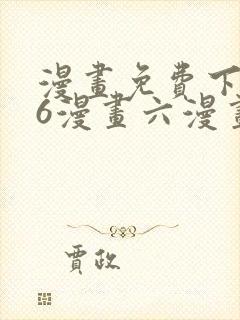 漫畫免費下
6漫畫六漫畫
賈政